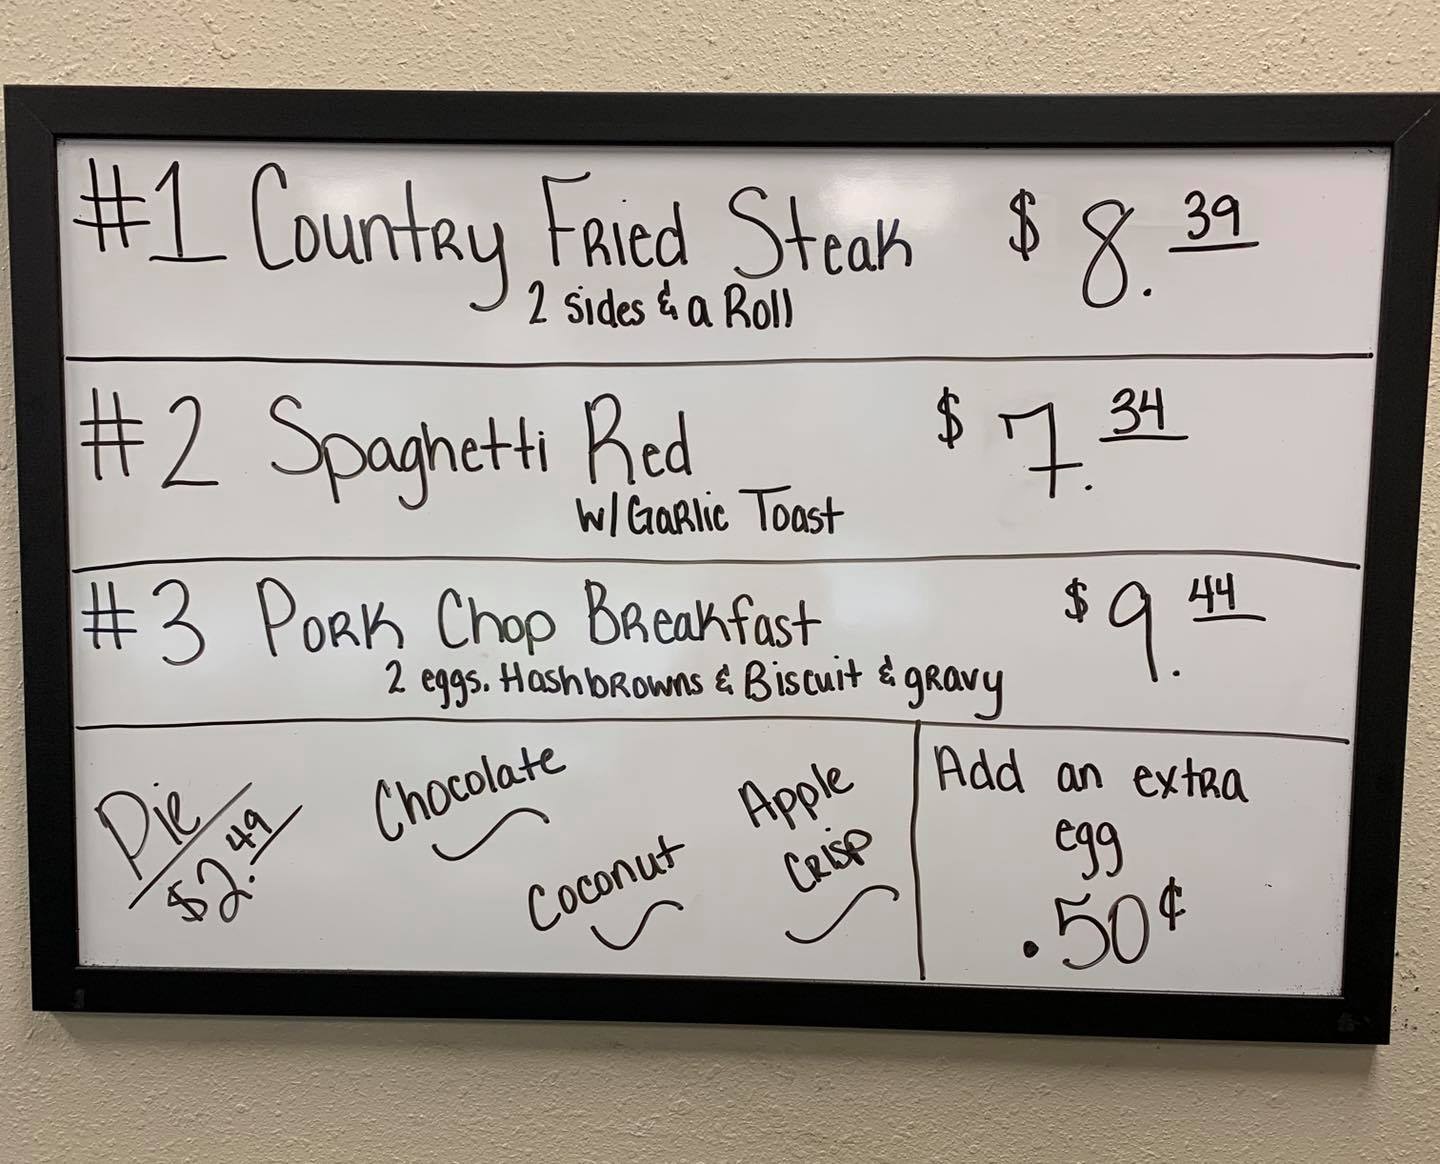 #1 Country Fried Steak $8.39
2 sides & a Roll
#2 Spaghetti Red $7.34
w/Garlic Toast
#3 Pork Chop Breakfast $9.44
2 eggs. Hashbrowns & Biscuit & gravy
Pie
$2.49
Chocolate
Coconut
Apple
Crisp
Add an extra
egg
.50¢